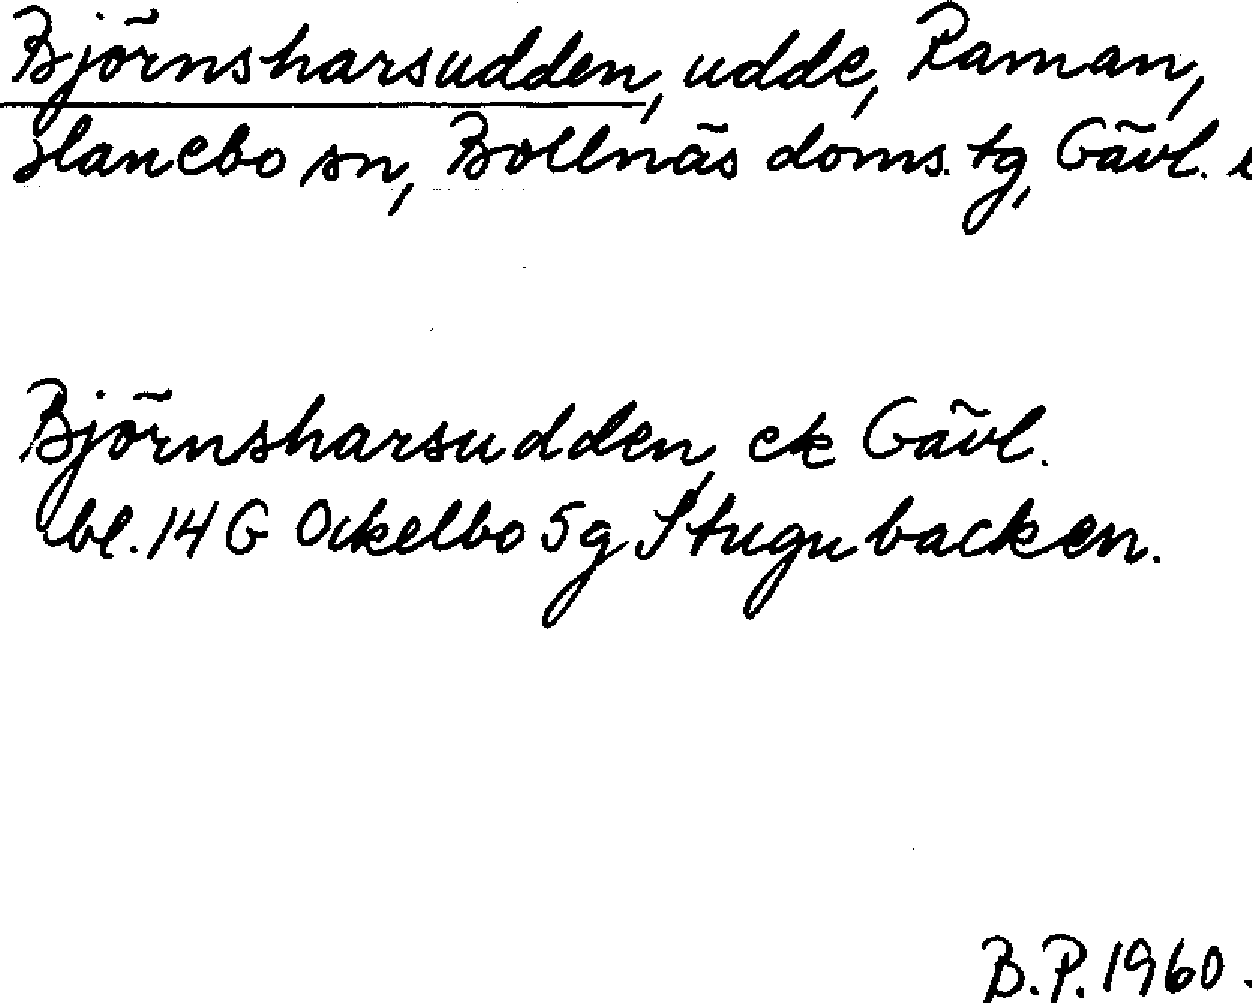 Björnsharsudden, udde, Raman,
Hanebo sn, Bollnäs doms. tg, Gävl.
Björnsharsudden, ek Gävl.
bl. 14 G Ockelbo 5g Stugubacken.
B.P. 1960.